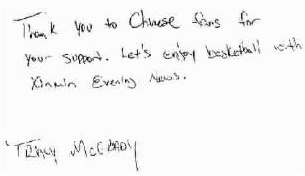 Thank you to Chinese fans for
your support. Let's enjoy basketball with
Xinmin Evening News.
Tracy McGrady